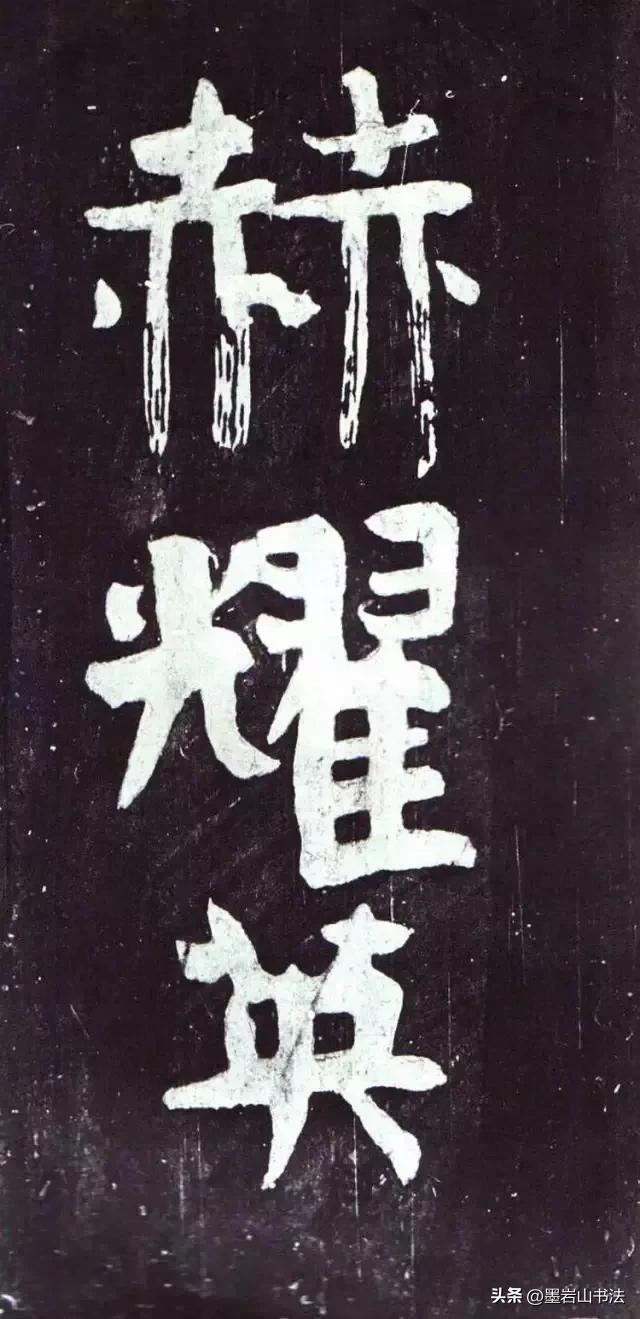 赫
耀
英
头条 @墨岩山书法